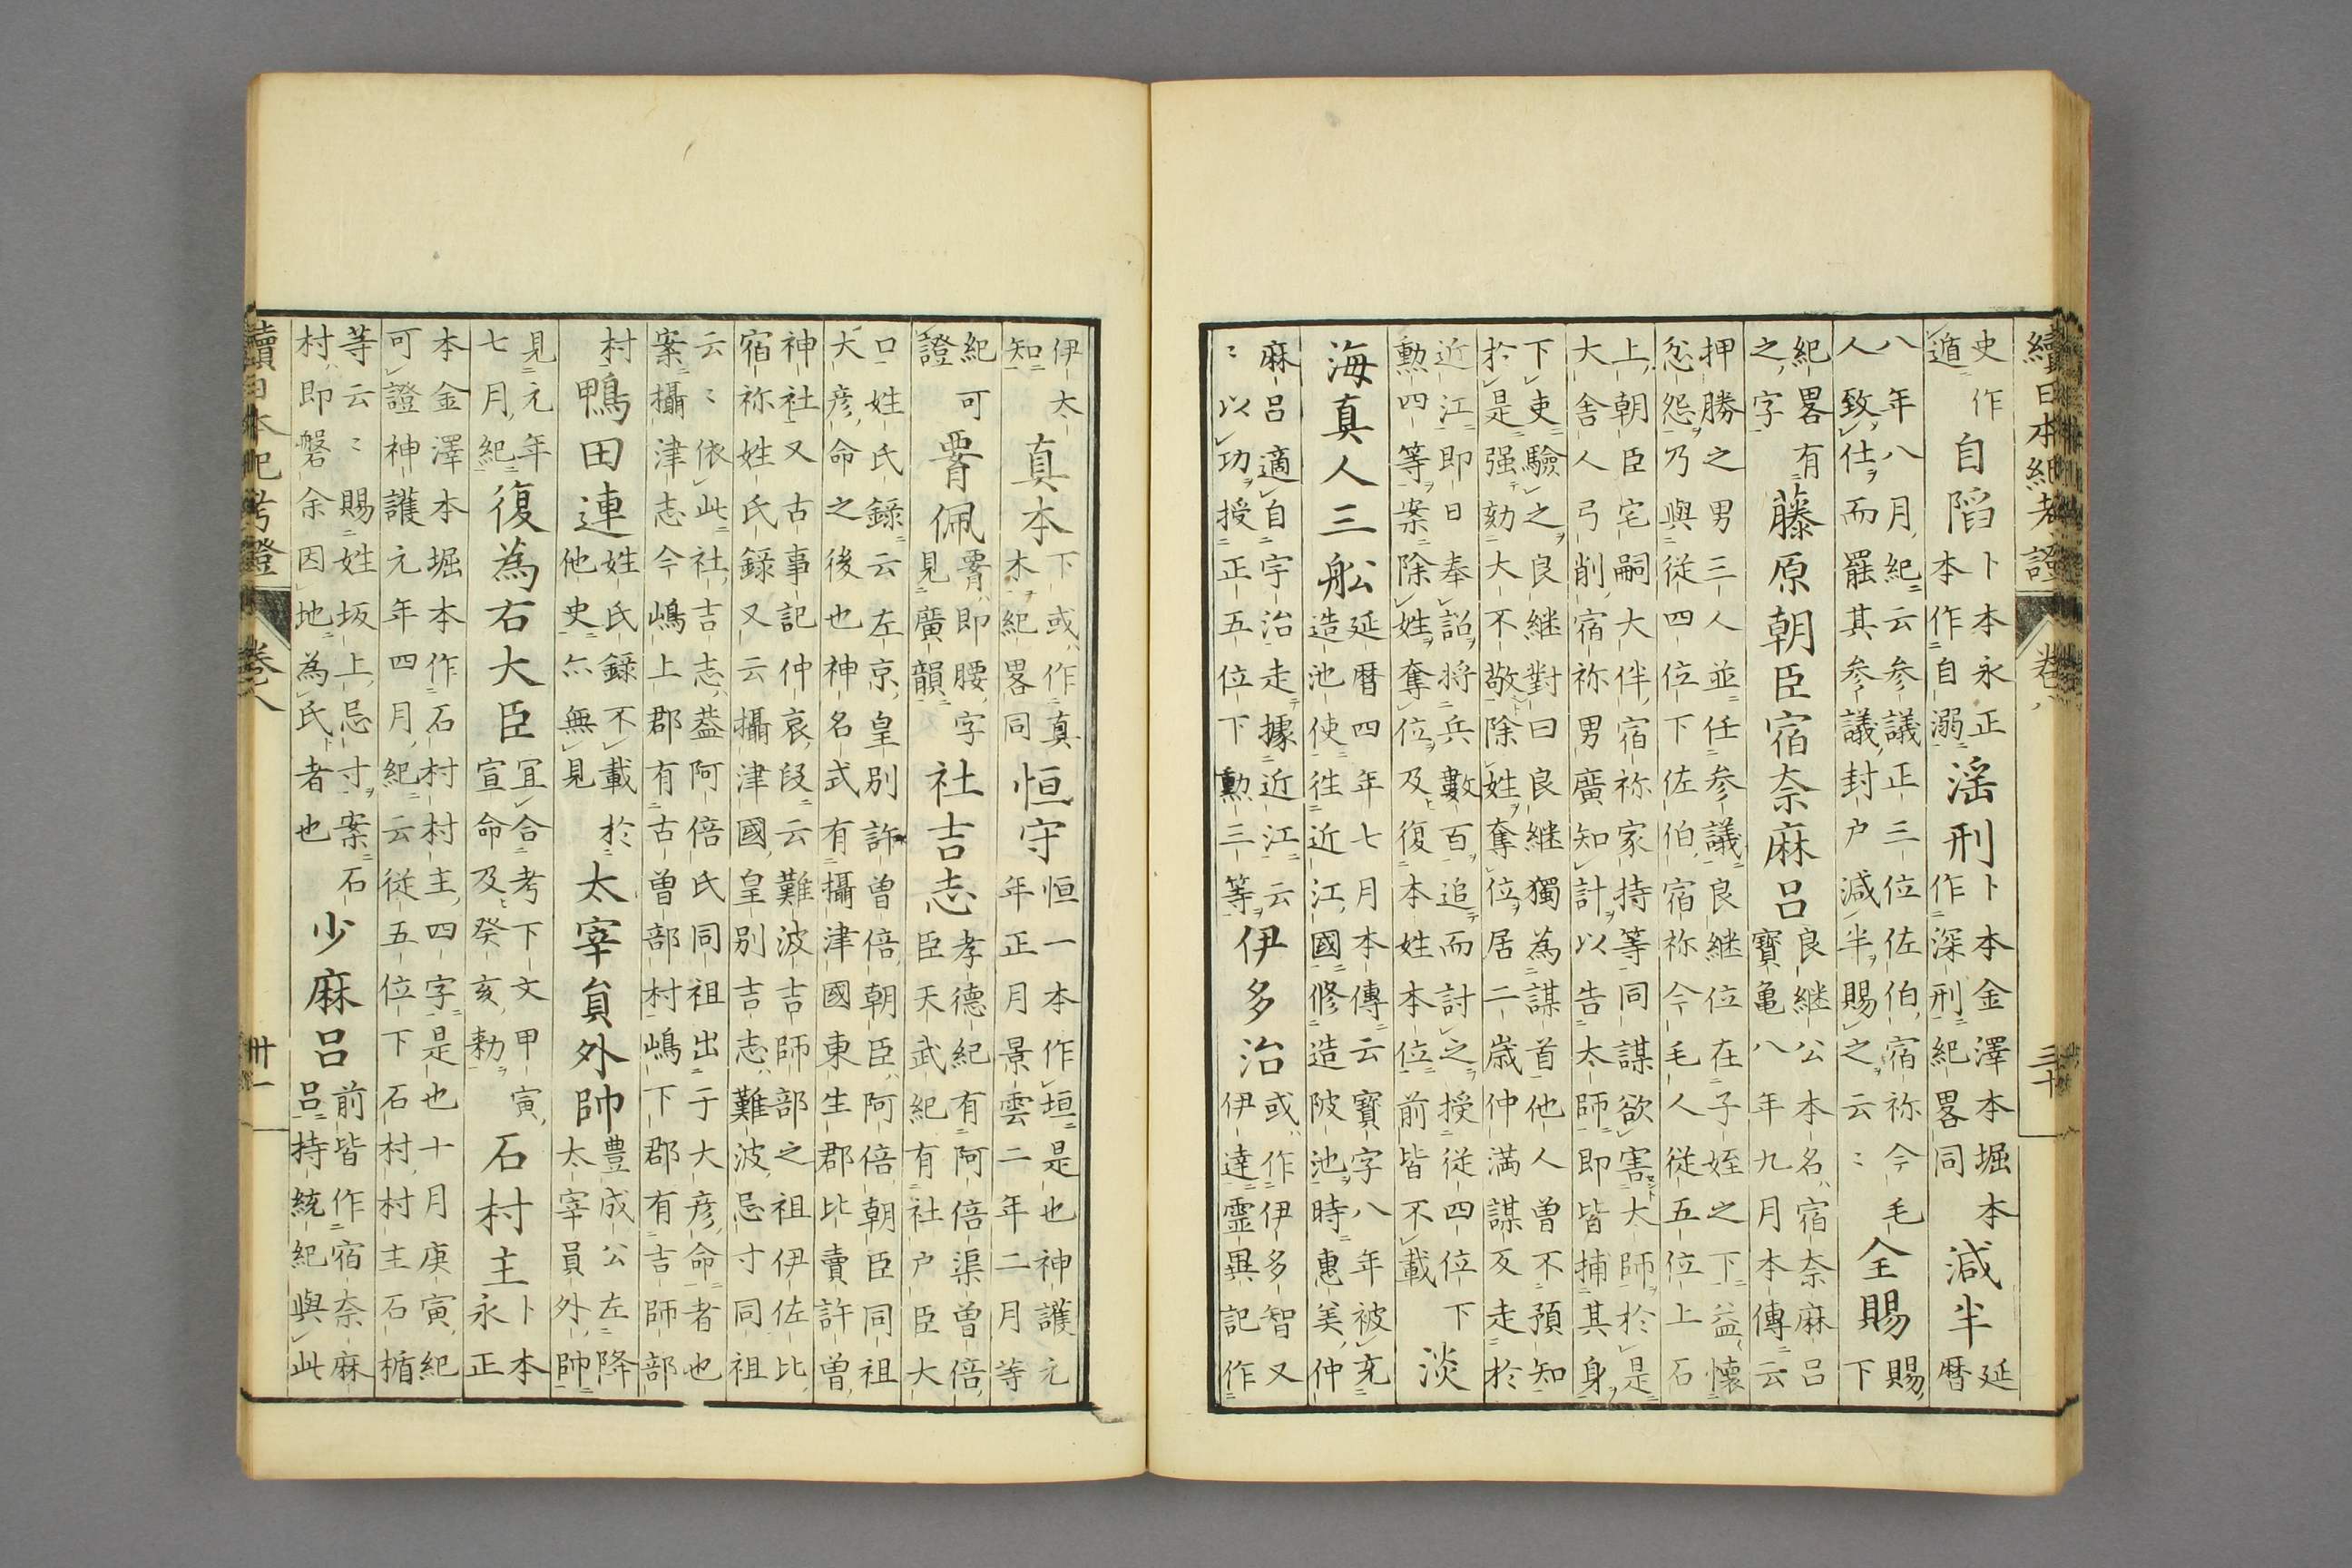 續日本紀考證 卷八 三十
史作
遁
自陷
卜本永正
本作自溺
淫刑
卜本金澤本堀本
作深刑紀畧同
減半
延
暦
八年八月紀云参議正三位佐伯宿祢今毛
人致仕而罷其参議封戸減半賜之云〻
全賜
賜
下
紀畧有
之字
藤原朝臣宿奈麻呂
良継公本名宿奈麻呂
寳亀八年九月本傳云
押勝之男三人並任参議良継位在子姪之下益懷
忿怨乃與從四位下佐伯宿祢今毛人從五位上石
上朝臣宅嗣大伴宿祢家持等同謀欲害大師於是
大舎人弓削宿祢男廣知計以告太師即皆捕其身
下吏驗之良継對曰良継獨為謀首他人曽不預知
於是强劾大不敬除姓奪位居二歳仲満謀反走於
近江即日奉詔將兵數百追而討之授從四位下
勲四等案除姓奪位及復本姓本位前皆不載
淡
海真人三舩
延暦四年七月本傳云寳字八年被充
造池使徃近江國修造陂池時惠美仲
麻呂適自宇治走據近江云
〻以功授正五位下勲三等
伊多治
或作伊多智又
伊達霊異記作
伊太
知
真本
下或作真
木紀畧同
恒守
恒一本作垣是也神護元
年正月景雲二年二月等
紀可
證
佩
即腰字
見廣韻
社吉志
孝德紀有阿倍渠曽倍
臣天武紀有社戸臣大
口姓氏録云左京皇別許曽倍朝臣阿倍朝臣同祖
大彦命之後也神名式有攝津國東生郡比賣許曽
神社又古事記仲哀段云難波吉師部之祖伊佐比
宿祢姓氏録又云攝津國皇別吉志難波忌寸同祖
云〻依此社吉志葢阿倍氏同祖出于大彦命者也
案攝津志今嶋上郡有古曽部村嶋下郡有吉師部
村
鴨田連
姓氏録不載於
他史亦無見
太宰員外帥
豊成公左降
太宰員外帥
見元年
七月紀
復為右大臣
冝合考下文甲寅
宣命及癸亥勅
石村主
卜本
永正
本金澤本堀本作石村村主四字是也十月庚寅紀
可證神護元年四月紀云從五位下石村村主石楯
等云〻賜姓坂上忌寸案石
村即磐余因地為氏者也
少麻呂
前皆作宿奈麻
呂持統紀與此
續日本紀考證 卷八 卅一